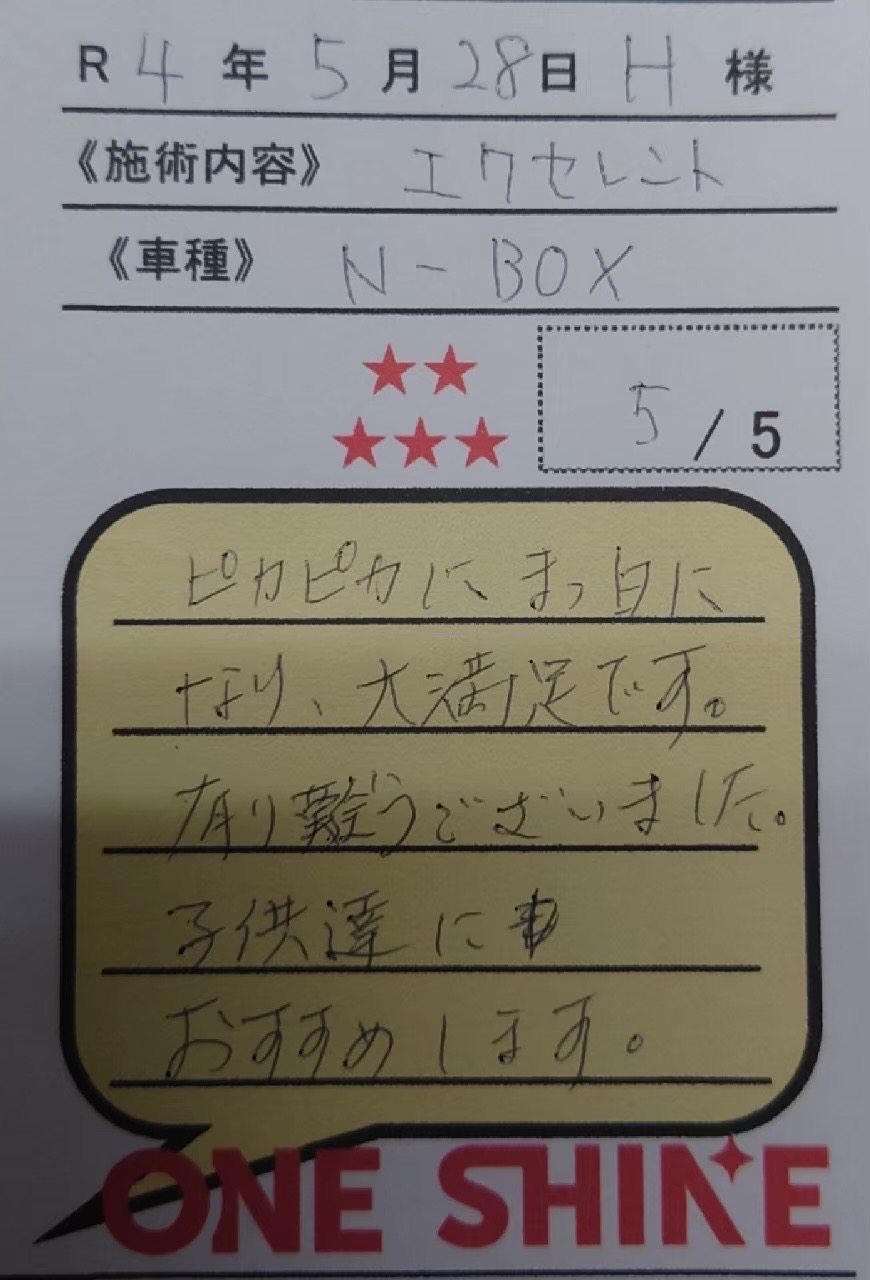 R 4 年 5 月 28 日 H 様
《施術内容》 エクセレント
《車種》 N-BOX
★★
★★★
5 / 5
ピカピカに まっ白に
なり、大満足です。
有り難うございました。
子供達にも
おすすめします。
ONE SHINE